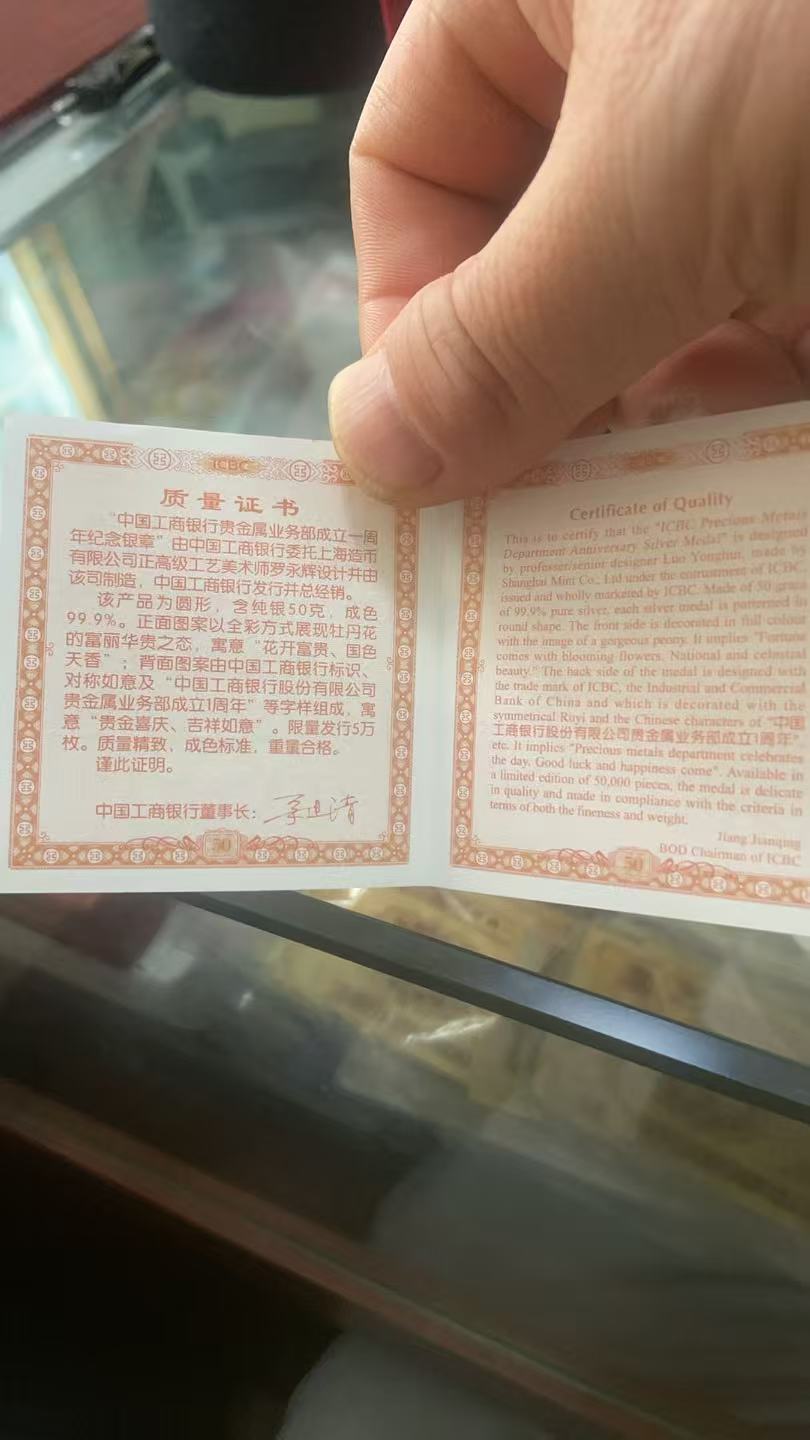 ICBC
质量证书
“中国工商银行贵金属业务部成立一周
年纪念银章”由中国工商银行委托上海造币
有限公司正高级工艺美术师罗永辉设计并由
该司制造，中国工商银行发行并总经销。
该产品为圆形，含纯银50克，成色
99.9%。正面图案以全彩方式展现牡丹花
的富丽华贵之态，寓意“花开富贵、国色
天香”；背面图案由中国工商银行标识、
对称如意及“中国工商银行股份有限公司
贵金属业务部成立1周年”等字样组成，寓
意“贵金喜庆、吉祥如意”。限量发行5万
枚。质量精致，成色标准，重量合格。
谨此证明。
中国工商银行董事长：
50
Certificate of Quality
This is to certify that the "ICBC Precious Metals
Department Anniversary Silver Medal" is designed
by professor/senior designer Luo Yonghui, made by
Shanghai Mint Co., Ltd under the entrustment of ICBC,
issued and wholly marketed by ICBC. Made of 50 grams
of 99.9% pure silver, each silver medal is patterned in
round shape. The front side is decorated in full colour
with the image of a gorgeous peony. It implies "Fortune
comes with blooming flowers, National and celestial
beauty." The back side of the medal is designed with
the trade mark of ICBC, the Industrial and Commercial
Bank of China and which is decorated with the
symmetrical Ruyi and the Chinese characters of "中国
工商银行股份有限公司贵金属业务部成立1周年"
etc. It implies "Precious metals department celebrates
the day. Good luck and happiness come". Available in
a limited edition of 50,000 pieces, the medal is delicate
in quality and made in compliance with the criteria in
terms of both the fineness and weight.
Jiang Jianqing
BOD Chairman of ICBC
50